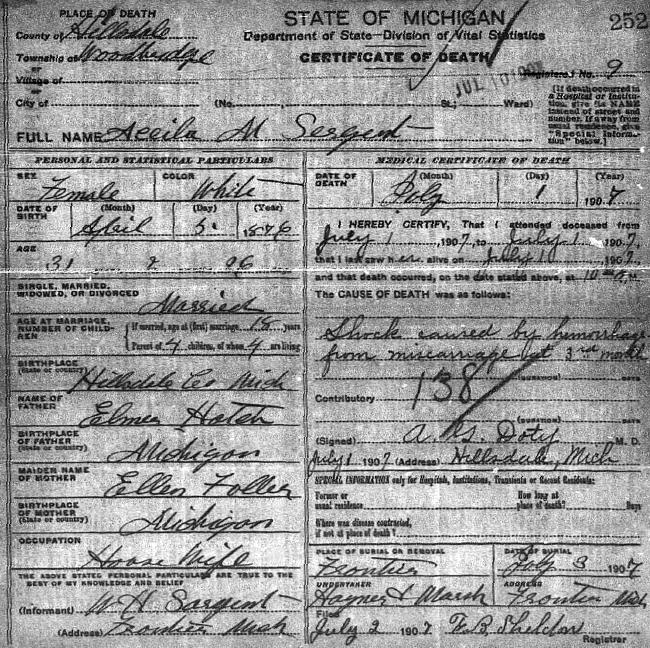 PLACE OF DEATH
STATE OF MICHIGAN
252
County of Hillsdale
Department of State—Division of Vital Statistics
Township of Woodbridge
CERTIFICATE OF DEATH
or
Village of
JUL 10
Registered No. 9
or
City of (No. St.; Ward)
[If death occurred in
a Hospital or Institu-
tion, give its NAME
instead of street and
number. If away from
usual residence, give
"Special Informa-
tion" below.]
FULL NAME M Sergent
PERSONAL AND STATISTICAL PARTICULARS
SEX Female COLOR White
DATE OF BIRTH (Month) April (Day) 5 (Year) 1876
AGE
31 2 26
SINGLE, MARRIED,
WIDOWED, OR DIVORCED Married
AGE AT MARRIAGE,
NUMBER OF CHILD-
REN
If married, age at (first) marriage 18 years
Parent of 4 children, of whom 4 are living
BIRTHPLACE
(State or country) Hillsdale Co Mich
NAME OF
FATHER Elmer Hatch
BIRTHPLACE
OF FATHER
(State or country) Michigan
MAIDEN NAME
OF MOTHER Ellen Fuller
BIRTHPLACE
OF MOTHER
(State or country) Michigan
OCCUPATION House Wife
THE ABOVE STATED PERSONAL PARTICULARS ARE TRUE TO THE
BEST OF MY KNOWLEDGE AND BELIEF
(Informant) W H Sargent
(Address) Frontier Mich
MEDICAL CERTIFICATE OF DEATH
DATE OF DEATH (Month) July (Day) 1 (Year) 1907
I HEREBY CERTIFY, That I attended deceased from
July 1 1907, to July 1 1907,
that I last saw her alive on July 1 1907
and that death occurred, on the date stated above, at 10
The CAUSE OF DEATH was as follows:
Shock caused by hemorrhage
from miscarriage at 3rd month
(DURATION) DAYS
Contributory 138
(DURATION) DAYS
(Signed) A. G. Doty M. D.
July 1 1907 (Address) Hillsdale, Mich
SPECIAL INFORMATION only for Hospitals, Institutions, Transients or Recent Residents:
Former or
usual residence
How long at
place of death? Days
Where was disease contracted,
if not at place of death?
PLACE OF BURIAL OR REMOVAL Frontier
DATE OF BURIAL July 3 1907
UNDERTAKER Haynes & Marsh
ADDRESS Frontier Mich
Filed
July 2 1907 F. B. Sheldon
Registrar